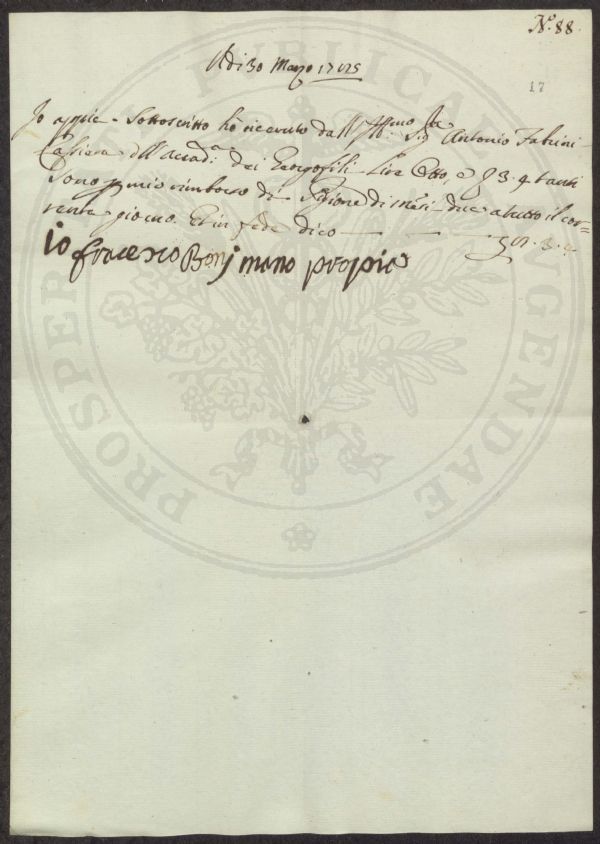 N.º 88
Adi 30 Marzo
17
Io appiè Sottoscritto hò ricevuto dall' Ill.mo Sig.r Antonio Fabrini
Cassiere dell' Accad.a dei Georgofili Lire Otto, e 3. 4 tanti
Sono p mio rimborso di di Mesi due a tutto il cor=
rente giorno. Et in fede dico — — — 8. 3. 4
Io fracesco Bonj mano propia
PROSPERITATI PUBLICAE AUGENDAE